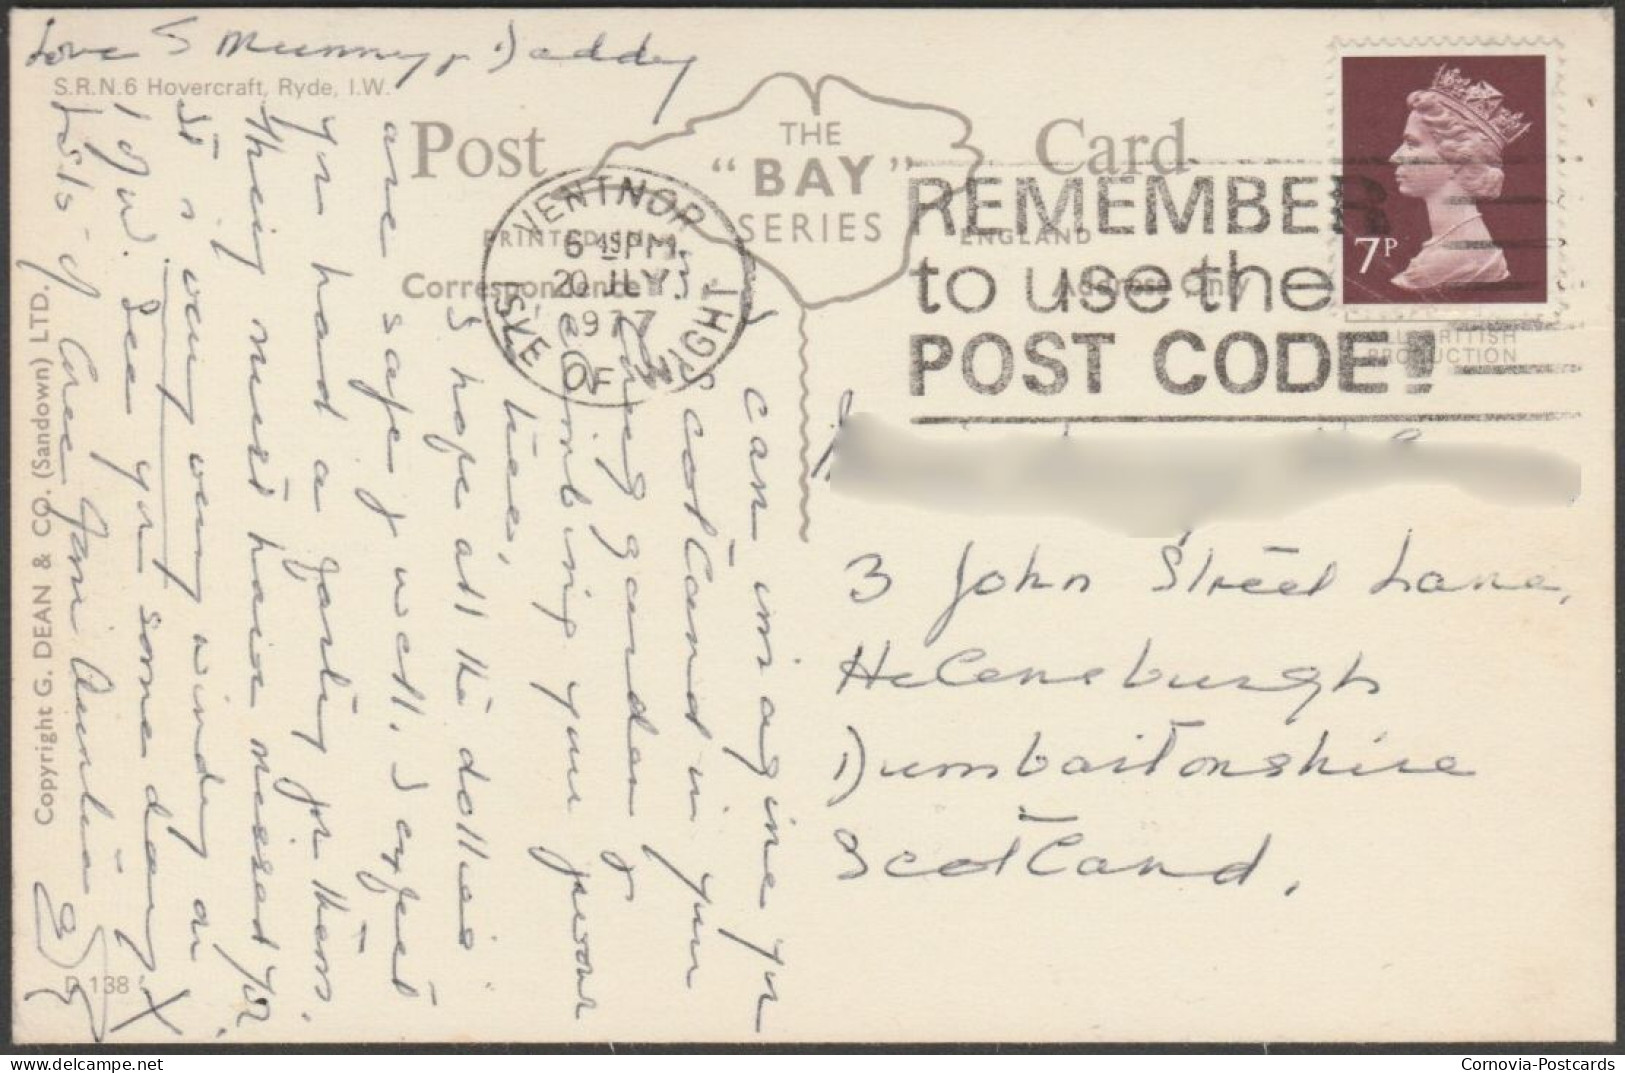 Love to Mummy & Daddy
S.R.N.6 Hovercraft, Ryde, I.W.
Post Card
THE
"BAY"
SERIES
PRINTED IN ENGLAND
Correspondence
Address Only
ALL BRITISH
PRODUCTION
VENTNOR
6 45PM
20 JLY
1977
ISLE OF WIGHT
REMEMBER
to use the
POST CODE!
7P
I can imagine you
in Scotland in your
long garden &
climbing your
trees.
I hope all the dollies
are safe & well. I expect
you had a party for them.
They must have missed you.
It is very very windy on
I of W. See you some day
Lots of love from Auntie
X
3 John Street Lane,
Helensburgh
Dumbartonshire
Scotland.
Copyright G. DEAN & CO. (Sandown) LTD.
D 138
Cornovia-Postcards